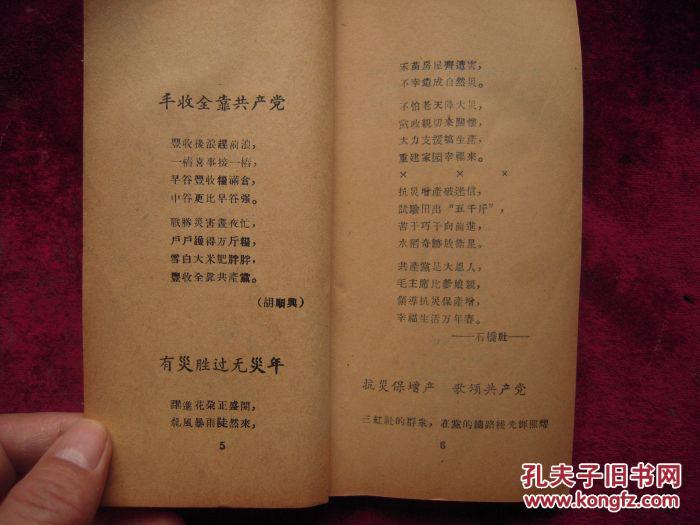 丰收全靠共产党
豐收後浪趕前浪,
一樁喜事接一樁,
早谷豐收糧滿倉,
中谷更比早谷强。
戰勝災害晝夜忙,
戶戶護得万斤糧,
雪白大米肥胖胖,
豐收全靠共產黨。
(胡順興)
有災胜过无災年
躍進花朵正盛開,
龙風暴雨陡然來,
5
禾苗房屋齊遭害,
不幸造成自然災。
不怕老天降大災,
黨政親切來關懷,
大力支援搞生產,
重建家园幸福來。
× × ×
抗災增產破迷信,
試驗田出“五千斤”,
苦干巧干向前進,
水稻奇跡放衛星。
共產黨是大恩人,
毛主席比爹娘親,
領導抗災保產增,
幸福生活万年春。
——石橋社——
抗災保增产 歌頌共产党
三虹社的群衆,在黨的總路綫光輝照耀
6
孔夫子旧书网
www.kongfz.com